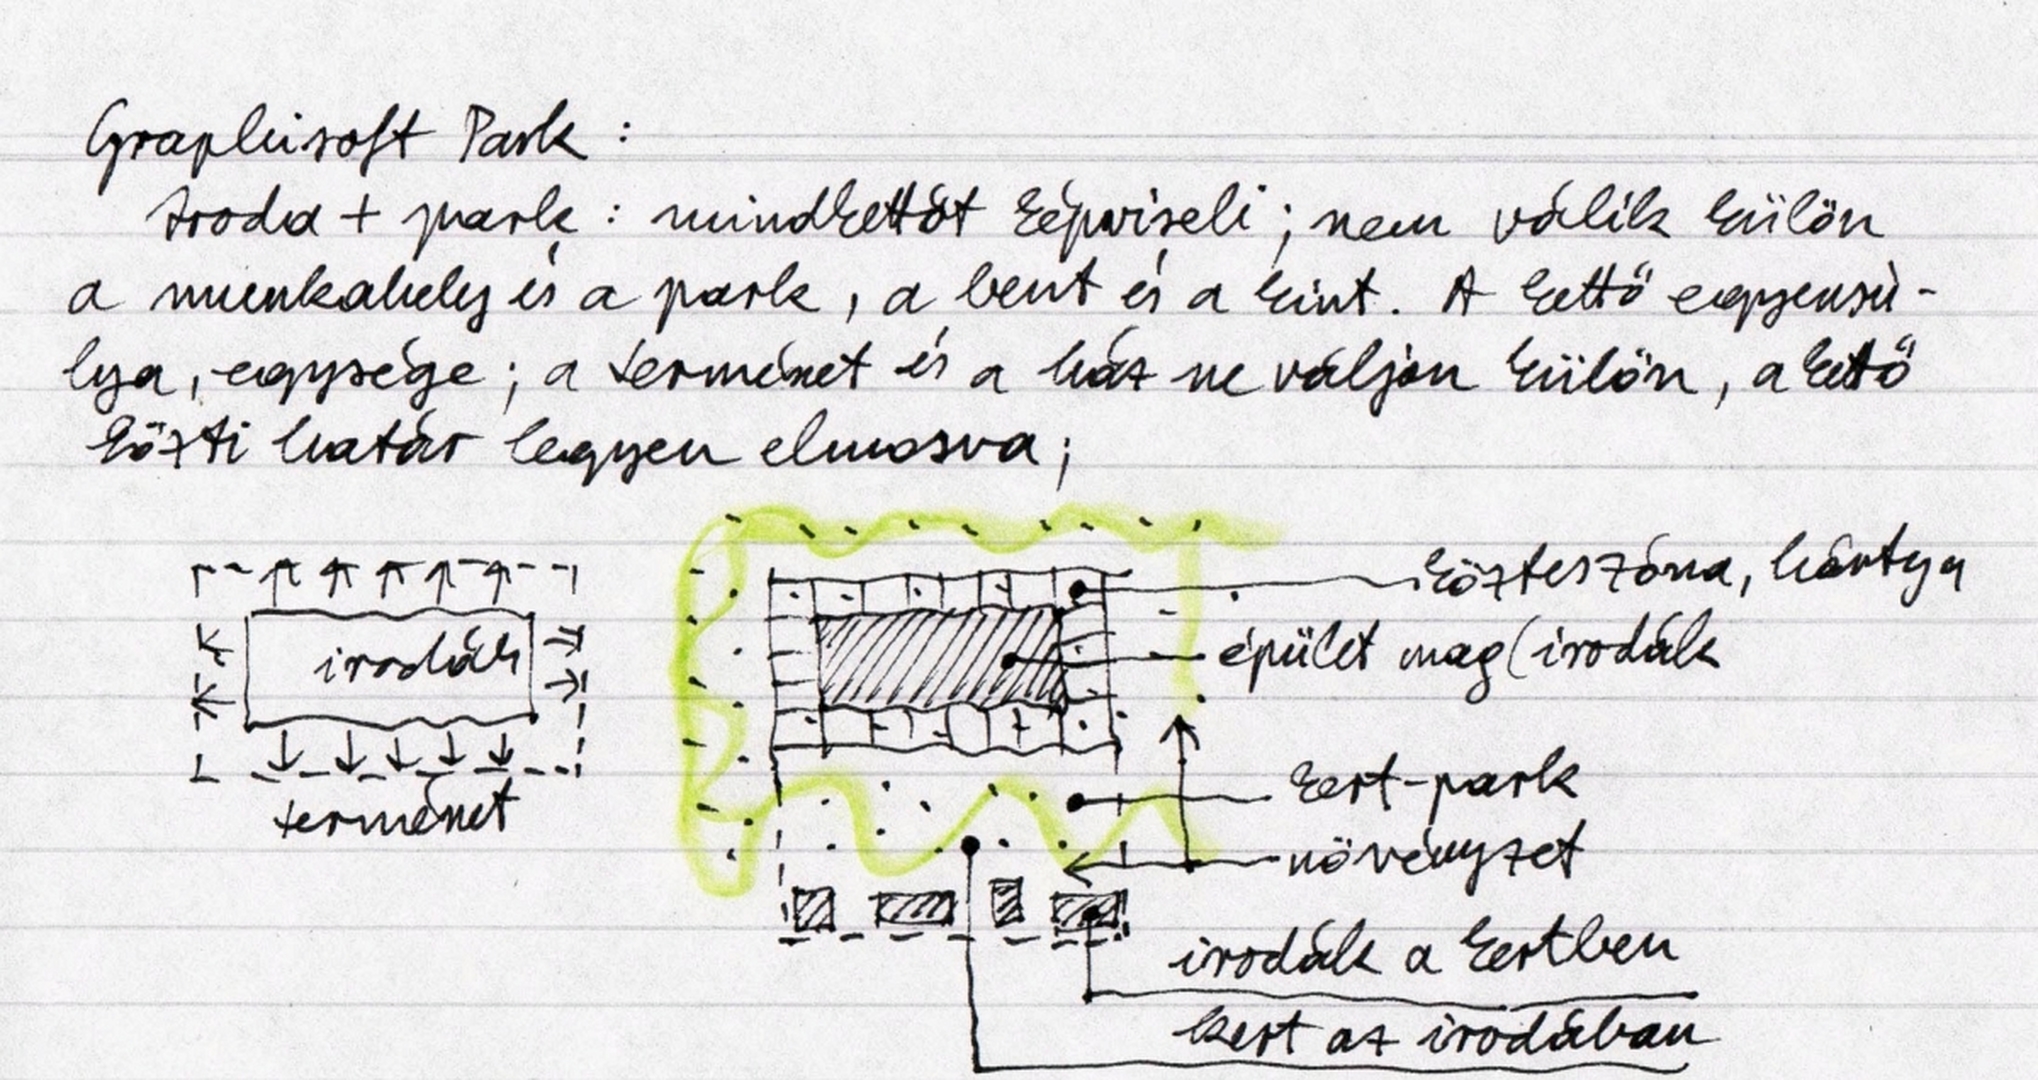 Graphisoft Park :
Iroda + park : mindkettőt képviseli ; nem válik külön
a munkahely és a park , a bent és a kint . A kettő egyensú-
lya , egysége ; a természet és a ház ne váljon külön , a kettő
közti határ legyen elmosva ;
irodák
természet
közteszóna, hártya
épület mag (irodák
kert-park
növényzet
irodák a kertben
kert az irodában